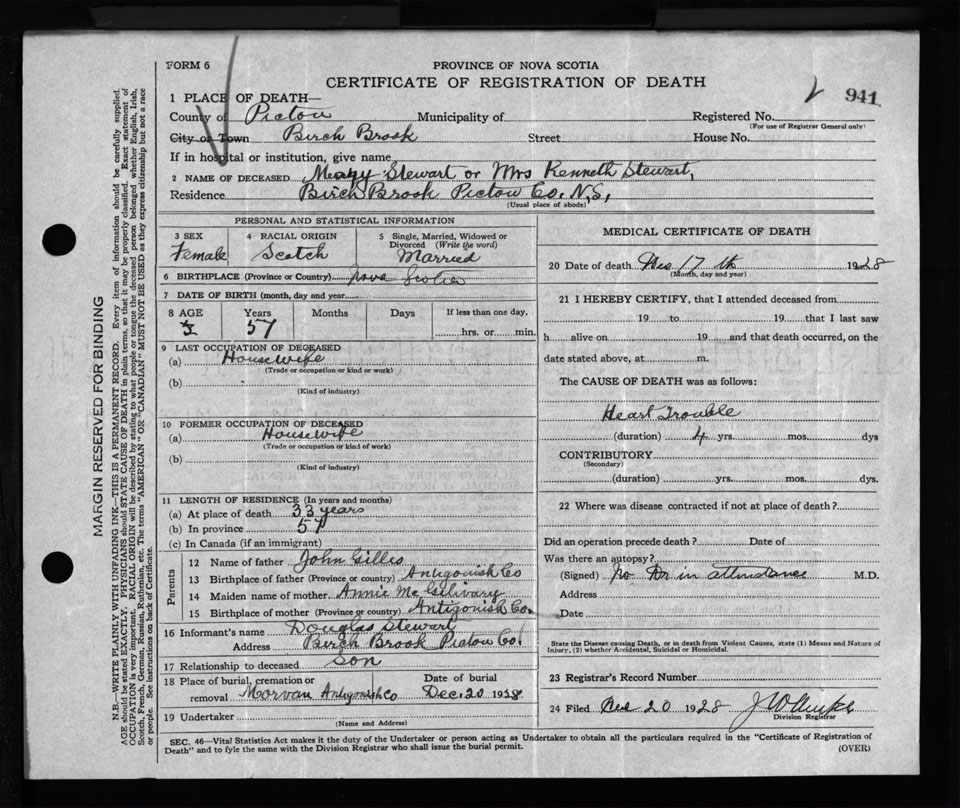 FORM 6
PROVINCE OF NOVA SCOTIA
CERTIFICATE OF REGISTRATION OF DEATH
941
1 PLACE OF DEATH—
County of Pictou Municipality of Registered No.
(For use of Registrar General only)
City or Town Birch Brook Street House No.
If in hospital or institution, give name
2 NAME OF DECEASED Mary Stewart or Mrs Kenneth Stewart,
Residence Birch Brook Pictou Co. N.S.
(Usual place of abode)
PERSONAL AND STATISTICAL INFORMATION
3 SEX
Female
4 RACIAL ORIGIN
Scotch
5 Single, Married, Widowed or
Divorced (Write the word)
Married
6 BIRTHPLACE (Province or Country) Nova Scotia
7 DATE OF BIRTH (month, day and year)
8 AGE Years Months Days If less than one day,
57 hrs. or min.
9 LAST OCCUPATION OF DECEASED
(a) Housewife
(Trade or occupation or kind or work)
(b)
(Kind of industry)
10 FORMER OCCUPATION OF DECEASED
(a) Housewife
(Trade or occupation or kind of work)
(b)
(Kind of industry)
11 LENGTH OF RESIDENCE (In years and months)
(a) At place of death 33 years
(b) In province 57
(c) In Canada (if an immigrant)
Parents
12 Name of father John Gillis
13 Birthplace of father (Province or country) Antigonish Co
14 Maiden name of mother Annie McGilivary
15 Birthplace of mother (Province or country) Antigonish Co.
16 Informant's name Douglas Stewart
Address Birch Brook Pictou Co.
17 Relationship to deceased son
18 Place of burial, cremation or
removal Morvan Antigonish Co
Date of burial
Dec. 20 1928
19 Undertaker
(Name and Address)
MEDICAL CERTIFICATE OF DEATH
20 Date of death Dec 17 th 1928
(Month, day and year)
21 I HEREBY CERTIFY, that I attended deceased from
19 to 19 that I last saw
h alive on 19 and that death occurred, on the
date stated above, at m.
The CAUSE OF DEATH was as follows:
Heart Trouble
(duration) 4 yrs. mos. dys
CONTRIBUTORY
(Secondary)
(duration) yrs. mos. dys.
22 Where was disease contracted if not at place of death?
Did an operation precede death? Date of
Was there an autopsy?
(Signed) No Dr in attendance M.D.
Address
Date
State the Disease causing Death, or in death from Violent Causes, state (1) Means and Nature of
Injury, (2) whether Accidental, Suicidal or Homicidal.
23 Registrar's Record Number
24 Filed Dec 20 1928
Division Registrar
SEC. 46—Vital Statistics Act makes it the duty of the Undertaker or person acting as Undertaker to obtain all the particulars required in the "Certificate of Registration of
Death" and to fyle the same with the Division Registrar who shall issue the burial permit.
(OVER)
MARGIN RESERVED FOR BINDING
N.B.—WRITE PLAINLY WITH UNFADING INK—THIS IS A PERMANENT RECORD. Every item of information should be carefully supplied.
AGE should be stated EXACTLY. PHYSICIANS should STATE CAUSE OF DEATH in plain terms, so that it may be properly classified. Exact statement of
OCCUPATION is very important. RACIAL ORIGIN will be described by stating to what people or tongue the deceased person belonged whether English, Irish,
Scotch, French, German, Russian, Ruthenian, etc. The terms "AMERICAN" OR "CANADIAN" MUST NOT BE USED as they express citizenship but not a race
or people. See instructions on back of Certificate.